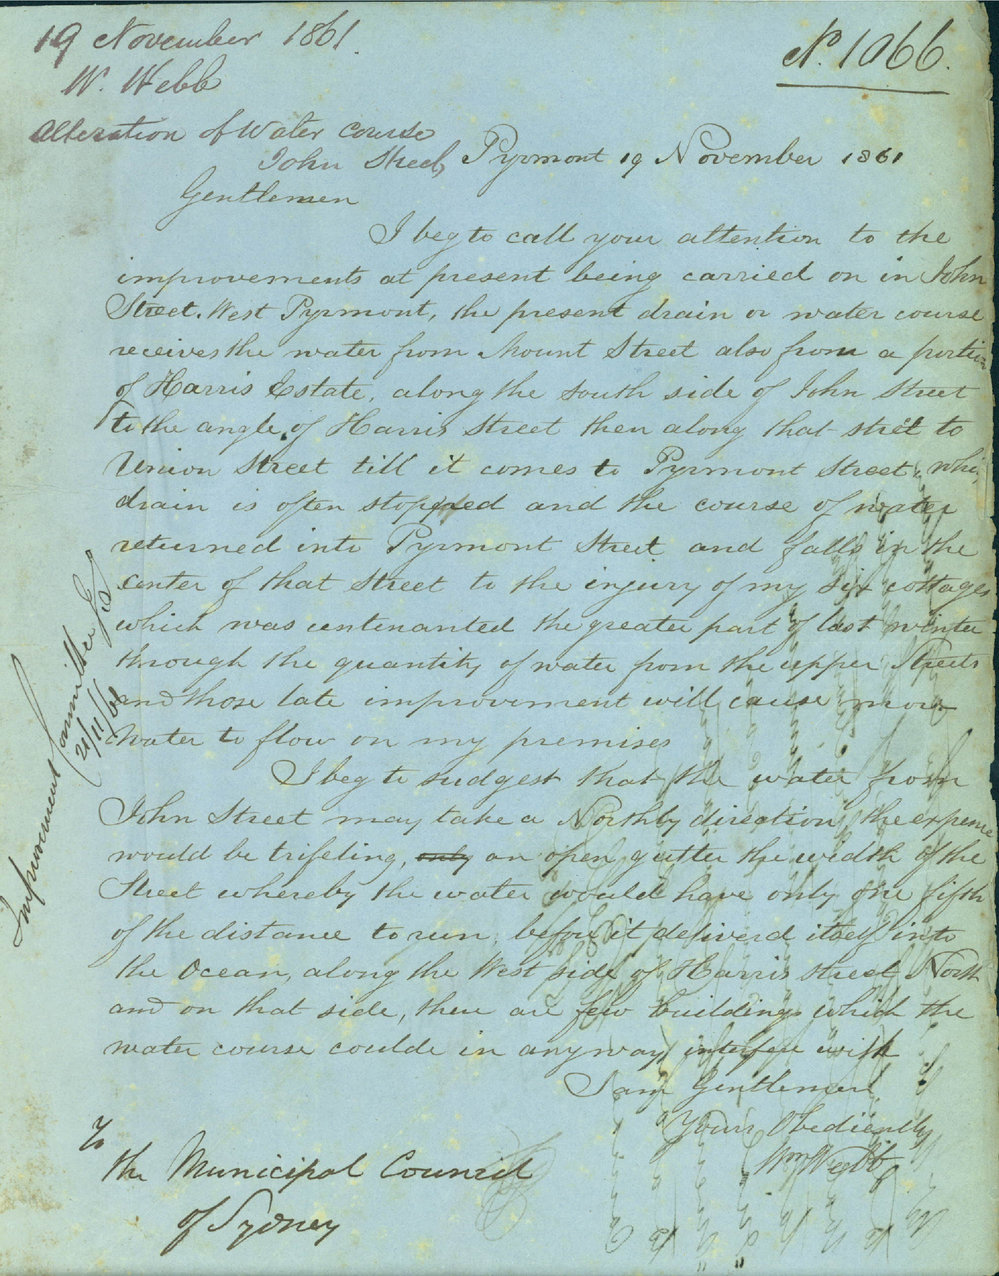 19 November 1861.
W. Webb
Alteration of Water Course
John Street
No. 1066.
Pyrmont 19 November 1861
Gentlemen
I beg to call your attention to the
improvements at present being carried on in John
Street. West Pyrmont, the present drain or water course
receives the water from Mount Street also from a portion
of Harris Estate, along the South side of John Street
to the angle of Harris Street then along that street to
Union Street till it comes to Pyrmont Street which
drain is often stopped and the course of water
returned into Pyrmont Street and falls in the
center of that Street to the injury of my six cottages
which was untenanted the greater part of last winter
through the quantity of water from the upper Streets
and those late improvement will cause more
water to flow on my premises
I beg to sudgest that the water from
John Street may take a Northly direction, the expence
would be trifeling, only an open gutter the width of the
Street whereby the water would have only one fifth
of the distance to run, before it deliverd itself into
the Ocean, along the West side of Harris Street North
and on that side, there are few buildings which the
water course coulde in anyway interfere with
I am Gentlemen
Yours Obediently
Wm Webb
To
the Municipal Council
of Sydney
Improvement Committee
21/11/